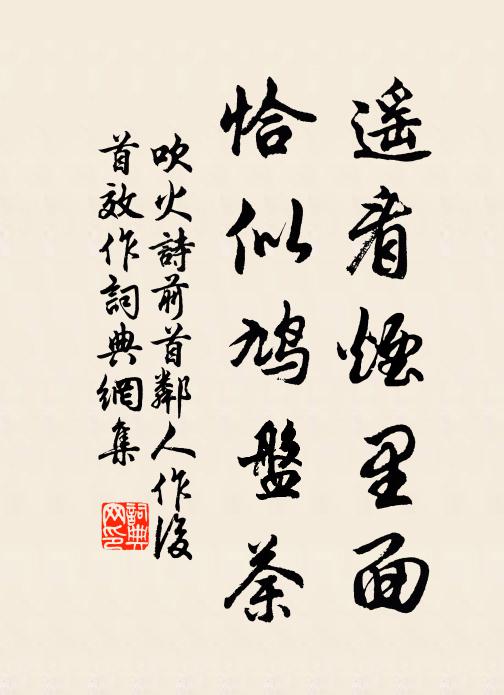 遥看煙里面
恰似鳩盤荼
吹火詩前首鄰人作後
首效作詞典網集
詞典网印